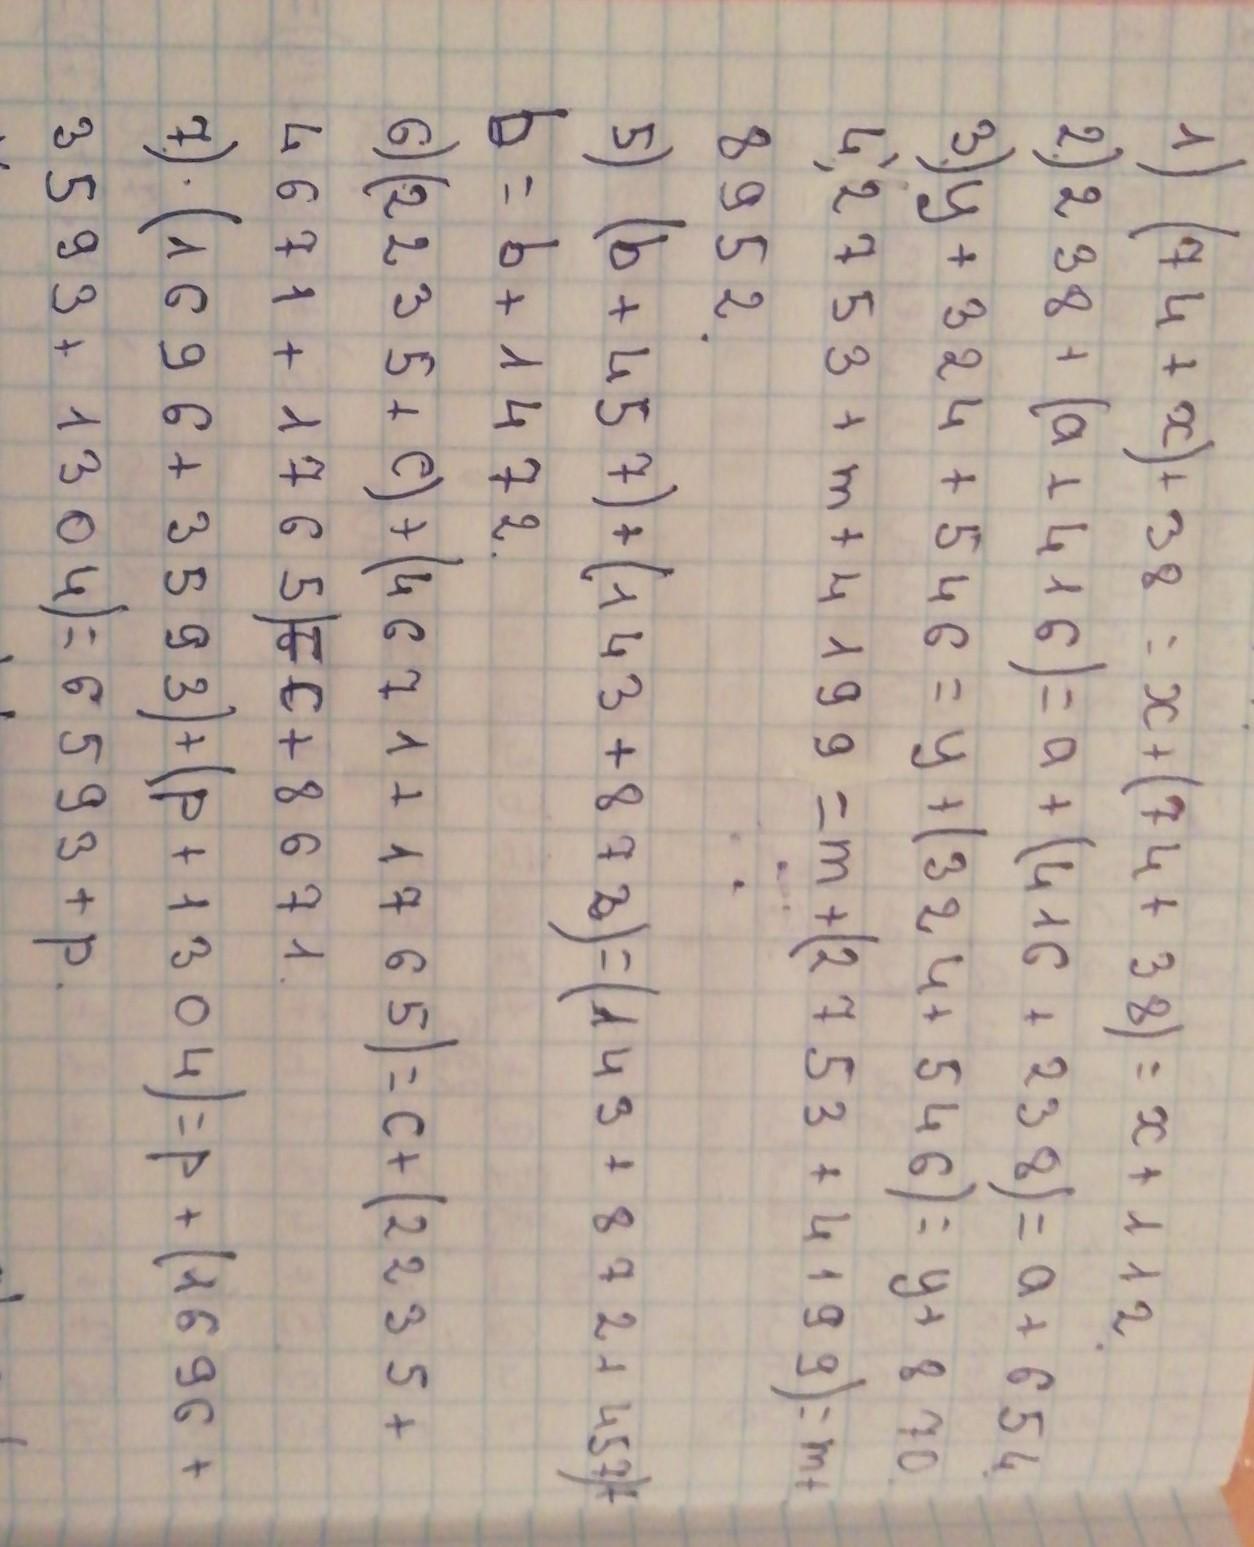 1) (74 + x) + 38 = x + (74 + 38) = x + 112.
2) 238 + (a + 416) = a + (416 + 238) = a + 654
3) y + 324 + 546 = y + (324 + 546) = y + 870
4) 2753 + m + 4199 = m + (2753 + 4199) = m +
8952.
5) (b + 457) + (143 + 872) = (143 + 872 + 457) +
b = b + 1472.
6) (2235 + c) + (4671 + 1765) = c + (2235 +
4671 + 1765) = c + 8671.
7) · (1696 + 3593) + (p + 1304) = p + (1696 +
3593 + 1304) = 6593 + p.